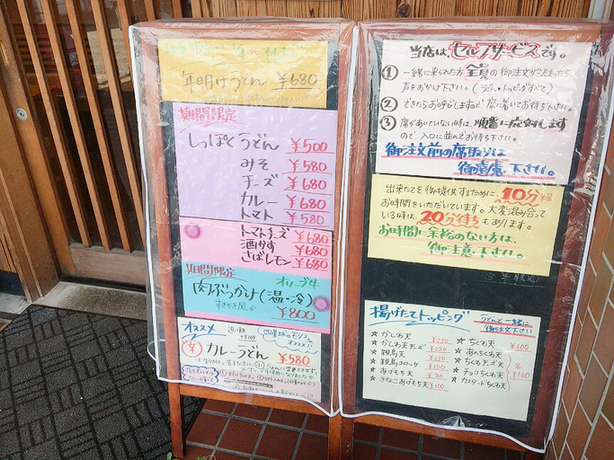 年明けうどん ¥680
期間限定
しっぽくうどん ¥500
みそ ¥580
チーズ ¥680
カレー ¥680
トマト ¥580
トマトチーズ ¥680
酒かす ¥680
さばレモン ¥680
期間限定 オリーブ牛
肉ぶっかけ(温・冷)
すきやき風 ¥800
オススメ
カレーうどん ¥580
当店は、セルフサービスです。
① 一緒に来られた方 全員の御注文が決まったら、
声をおかけ下さい。(うどん・トッピングすべて)
② できたらお呼びしますので 席に着いてお待ち下さい。
③ 席があいていない時は、順番に応対します
ので 入口に並んでお待ち下さい。
御注文前の席取りは
御遠慮 下さい。
出来たてを御提供するために、10分程
お時間をいただいています。大変混み合って
いる時は、20分待ちもあります。
お時間に余裕のない方は、
御注意 下さい。
揚げたてトッピング うどんと一緒に
御注文下さい
☆ かしわ天
☆ ちくわ天 ¥100
☆ 親鳥天
☆ 親鳥コロッケ
☆ あげもち天 ¥130
☆ チョコちくわ天 ¥120
☆ きなこあげもち天
☆ カスタードちくわ天